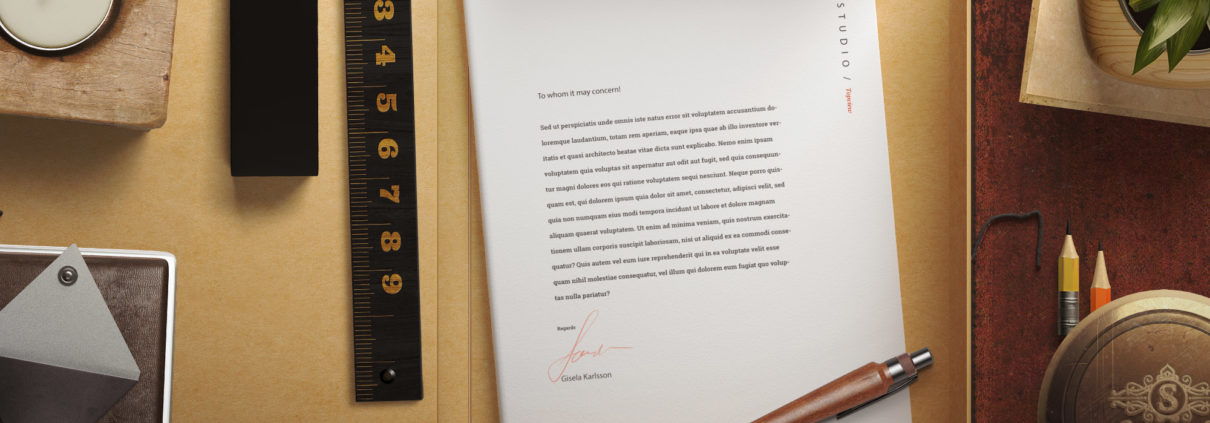 3
4
5
6
7
8
9
STUDIO / Topview
To whom it may concern!
Sed ut perspiciatis unde omnis iste natus error sit voluptatem accusantium do-
loremque laudantium, totam rem aperiam, eaque ipsa quae ab illo inventore ver-
itatis et quasi architecto beatae vitae dicta sunt explicabo. Nemo enim ipsam
voluptatem quia voluptas sit aspernatur aut odit aut fugit, sed quia consequun-
tur magni dolores eos qui ratione voluptatem sequi nesciunt. Neque porro quis-
quam est, qui dolorem ipsum quia dolor sit amet, consectetur, adipisci velit, sed
quia non numquam eius modi tempora incidunt ut labore et dolore magnam
aliquam quaerat voluptatem. Ut enim ad minima veniam, quis nostrum exercita-
tionem ullam corporis suscipit laboriosam, nisi ut aliquid ex ea commodi conse-
quatur? Quis autem vel eum iure reprehenderit qui in ea voluptate velit esse
quam nihil molestiae consequatur, vel illum qui dolorem eum fugiat quo volup-
tas nulla pariatur?
Regards
Gisela Karlsson
S